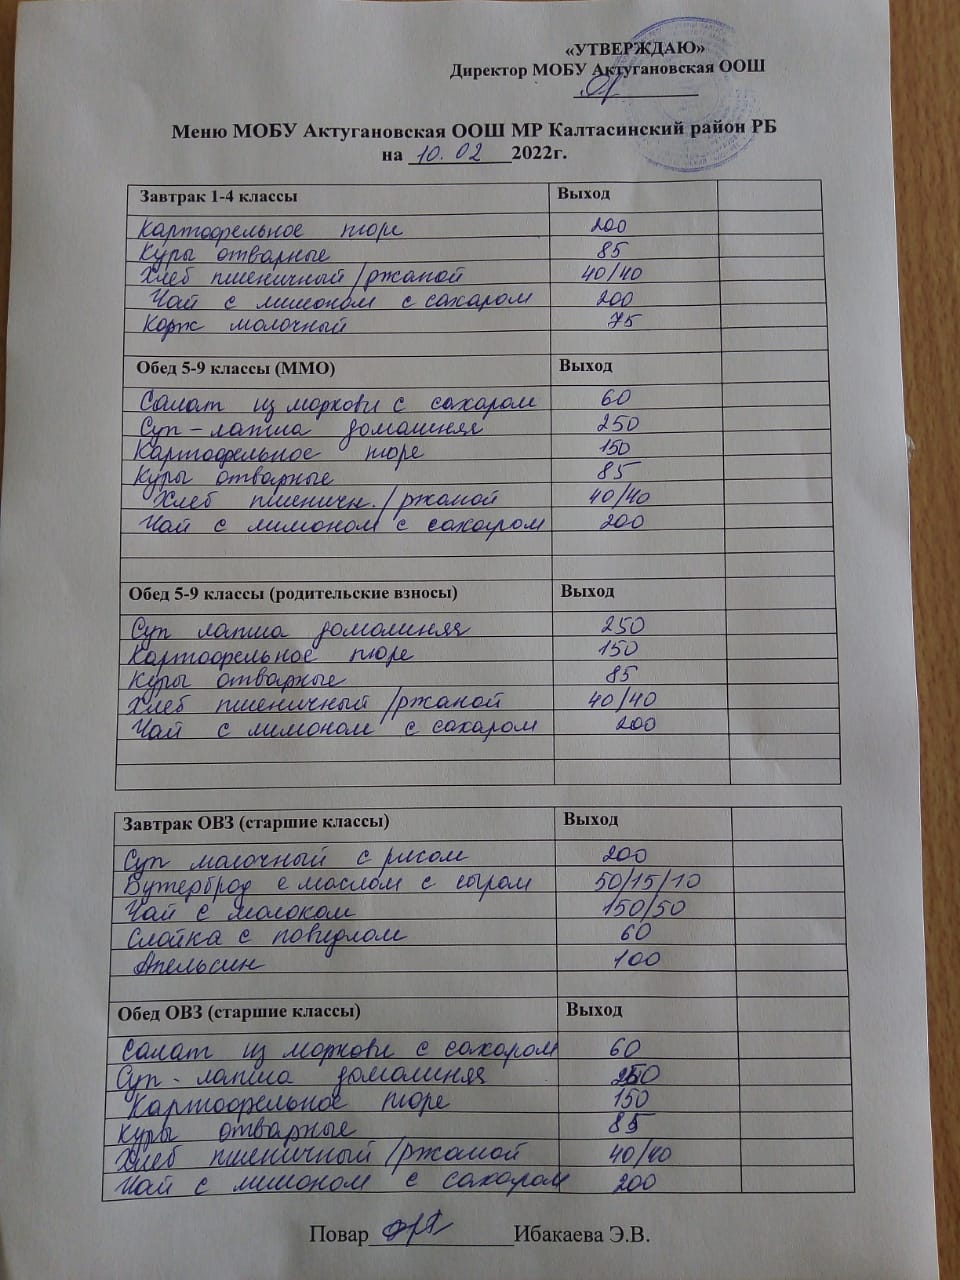 «УТВЕРЖДАЮ»
Директор МОБУ Актугановская ООШ
Меню МОБУ Актугановская ООШ МР Калтасинский район РБ
на 10.02 2022г.
Завтрак 1-4 классы Выход
Картофельное пюре 200
Куры отварные 85
Хлеб пшеничный/ржаной 40/40
Чай с лимоном с сахаром 200
Корж молочный 75
Обед 5-9 классы (ММО) Выход
Салат из моркови с сахаром 60
Суп-лапша домашняя 250
Картофельное пюре 150
Куры отварные 85
Хлеб пшеничн./ржаной 40/40
Чай с лимоном с сахаром 200
Обед 5-9 классы (родительские взносы) Выход
Суп лапша домашняя 250
Картофельное пюре 150
Куры отварные 85
Хлеб пшеничный/ржаной 40/40
Чай с лимоном с сахаром 200
Завтрак ОВЗ (старшие классы) Выход
Суп молочный с рисом 200
Бутерброд с маслом с сыром 50/15/10
Чай с молоком 150/50
Слойка с повидлом 60
Апельсин 100
Обед ОВЗ (старшие классы) Выход
Салат из моркови с сахаром 60
Суп-лапша домашняя 250
Картофельное пюре 150
Куры отварные 85
Хлеб пшеничный/ржаной 40/40
Чай с лимоном с сахаром 200
Повар Ибакаева Э.В.